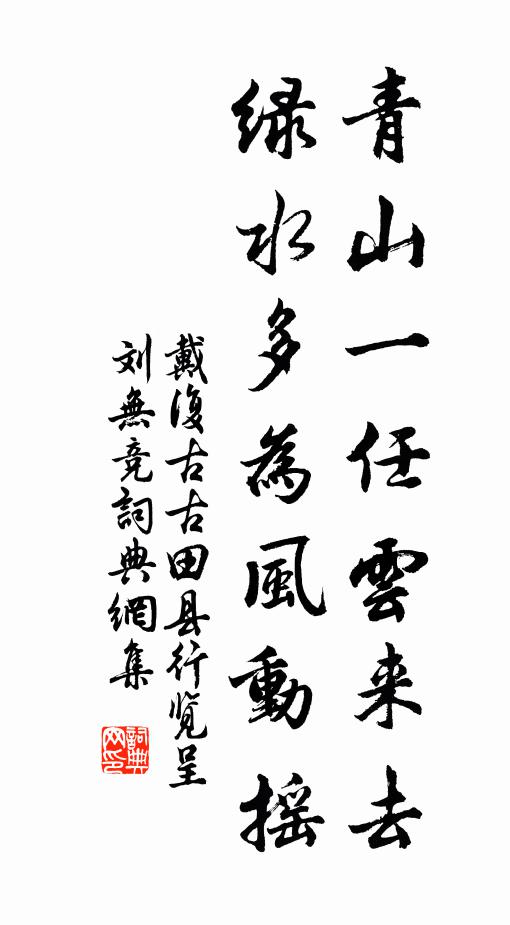 青山一任雲来去
绿水多為風動摇
戴復古古田县行览呈
刘無竞詞典網集
詞典網印